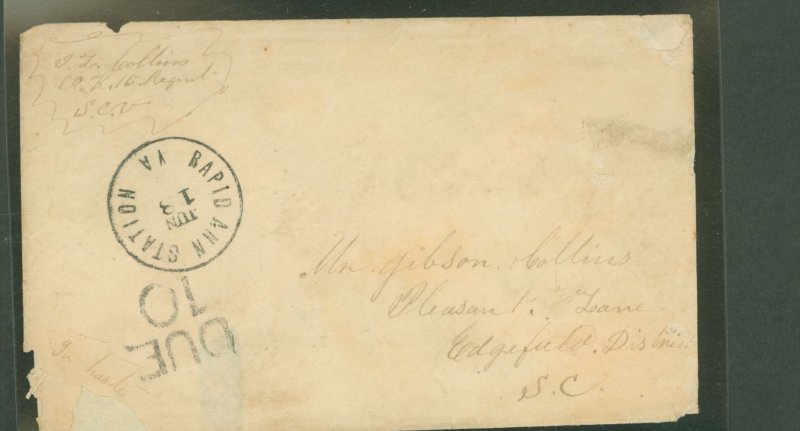 J. L. Collins
Co. K 15 Regmt
S.C.V
RAPID ANN STATION VA
JUN
13
DUE
10
Mr. Gibson. Collins
Pleasant. Lane
Edgefield. District
S.C.
In haste